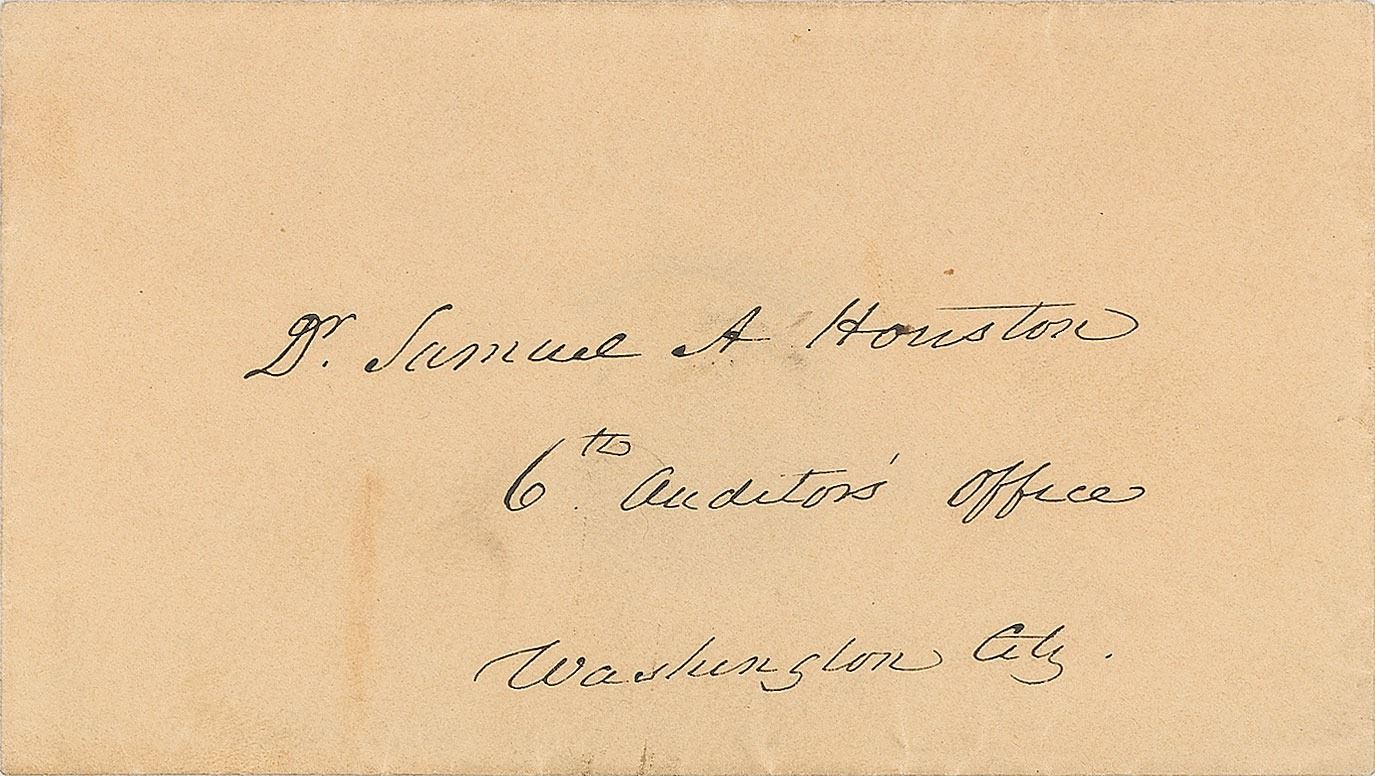 Dr. Samuel A Houston
6th Auditors' Office
Washington City.